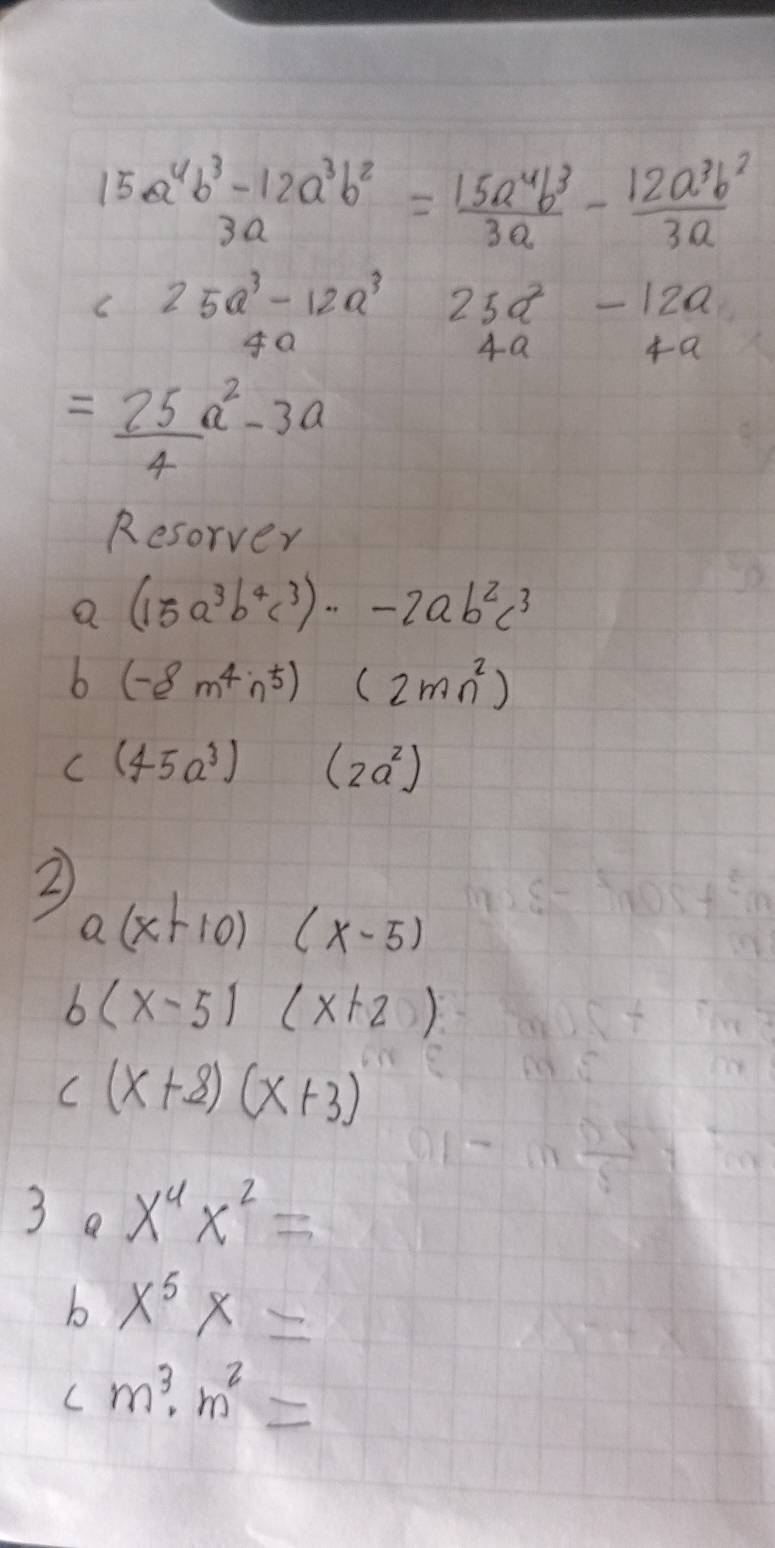 15a⁴b³ - 12a³b² / 3a = 15a⁴b³ / 3a - 12a³b² / 3a
c 25a³ - 12a³ / 4a 25a² / 4a - 12a / 4a
= 25/4 a² - 3a
Resorver
a (15a³b⁴c³) .. -2ab²c³
b (-8 m⁴n⁵) (2mn²)
c (45a³) (2a²)
2)
a (x+10) (x-5)
b (x-5) (x+2)
c (x+8) (x+3)
3 a x⁴ x² =
b x⁵ x =
c m³. m² =